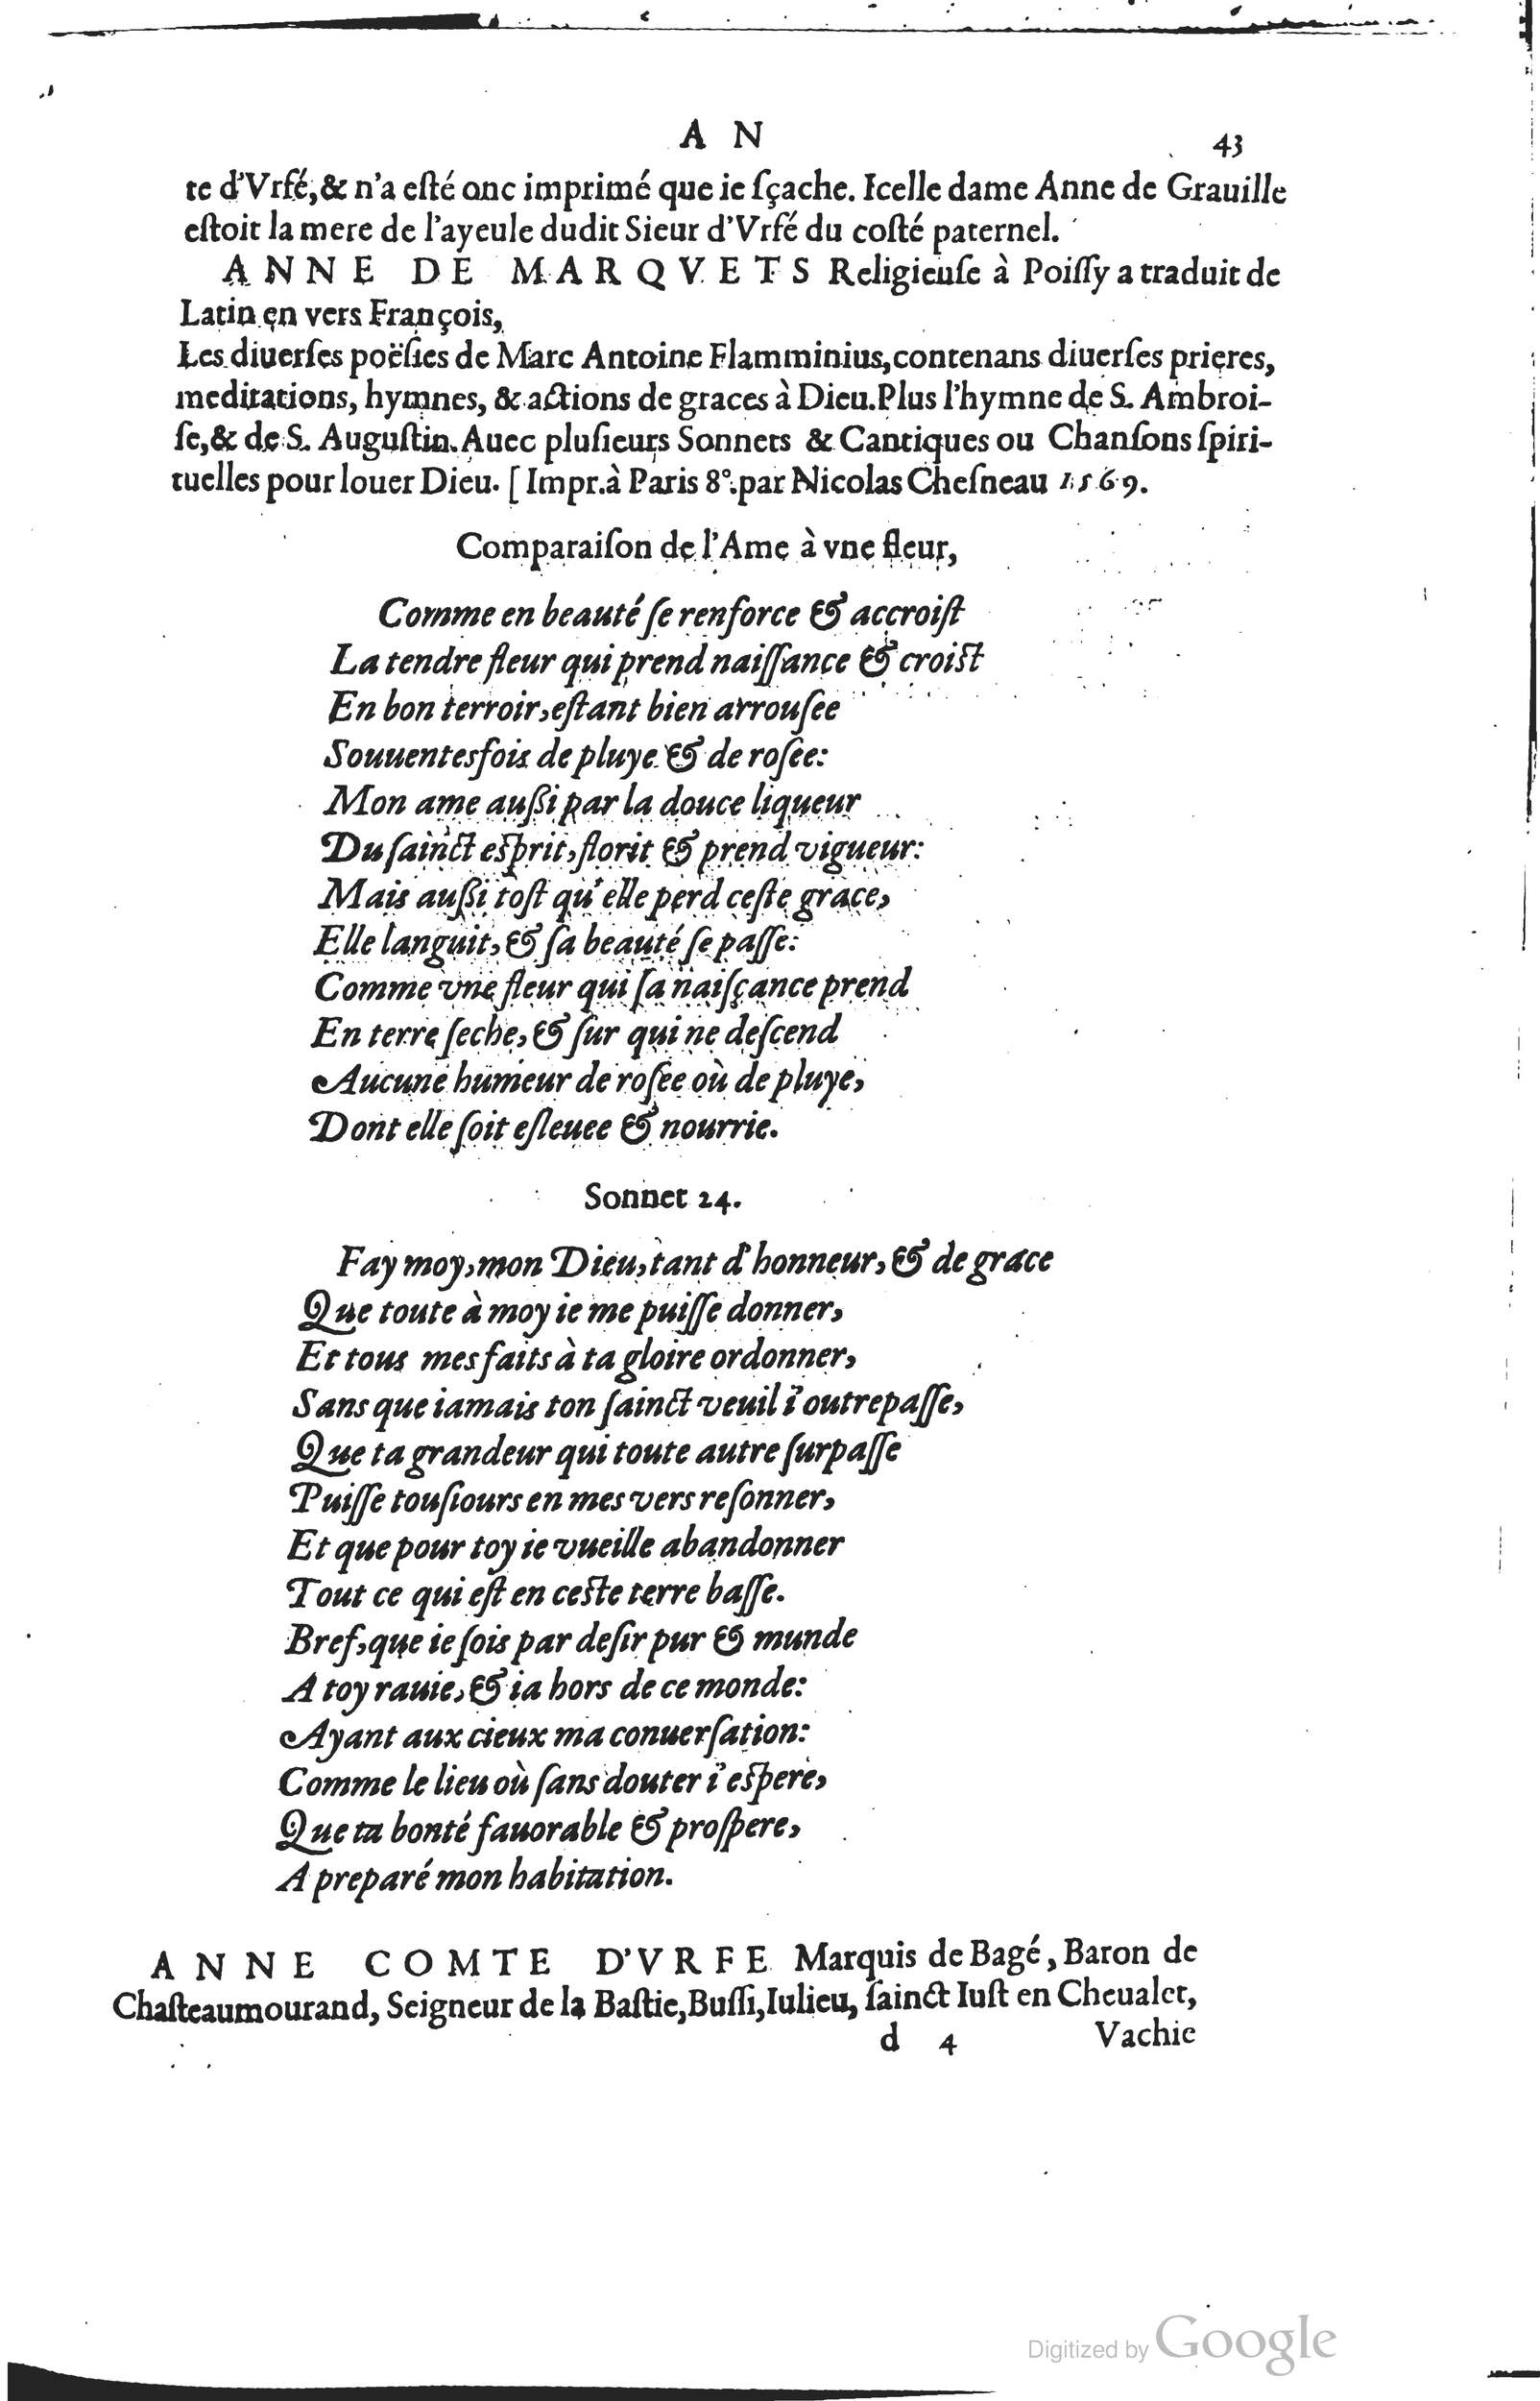 A N 43
te d'Vrfé,& n'a eſté onc imprimé que ie ſçache. Icelle dame Anne de Grauille
eſtoit la mere de l'ayeule dudit Sieur d'Vrfé du coſté paternel.
ANNE DE MARQVETS Religieuſe à Poiſſy a traduit de
Latin en vers François,
Les diuerſes poëſies de Marc Antoine Flamminius,contenans diuerſes prieres,
meditations, hymnes, & actions de graces à Dieu.Plus l'hymne de S. Ambroi-
ſe,& de S. Auguſtin.Auec pluſieurs Sonnets & Cantiques ou Chanſons ſpiri-
tuelles pour louer Dieu. [Impr.à Paris 8°.par Nicolas Cheſneau 1569.
Comparaiſon de l'Ame à vne fleur,
Comme en beauté ſe renforce & accroiſt
La tendre fleur qui prend naiſſance & croiſt
En bon terroir,eſtant bien arrouſee
Souuentesfois de pluye & de roſee:
Mon ame auſſi par la douce liqueur
Du ſainct eſprit,florit & prend vigueur:
Mais auſſi toſt qu'elle perd ceſte grace,
Elle languit,& ſa beauté ſe paſſe:
Comme vne fleur qui ſa naiſçance prend
En terre ſeche,& ſur qui ne deſcend
Aucune humeur de roſee où de pluye,
Dont elle ſoit eſleuee & nourrie.
Sonnet 24.
Fay moy,mon Dieu,tant d'honneur,& de grace
Que toute à moy ie me puiſſe donner,
Et tous mes faits à ta gloire ordonner,
Sans que iamais ton ſainct veuil i'outrepaſſe,
Que ta grandeur qui toute autre ſurpaſſe
Puiſſe touſiours en mes vers reſonner,
Et que pour toy ie vueille abandonner
Tout ce qui eſt en ceſte terre baſſe.
Bref,que ie ſois par deſir pur & munde
A toy rauie,& ia hors de ce monde:
Ayant aux cieux ma conuerſation:
Comme le lieu où ſans douter i'eſpere,
Que ta bonté fauorable & proſpere,
A preparé mon habitation.
ANNE COMTE D'VRFE Marquis de Bagé, Baron de
Chaſteaumourand, Seigneur de la Baſtie,Buſſi,Iulieu, ſainct Iuſt en Cheualet,
d 4 Vachie
Digitized by Google